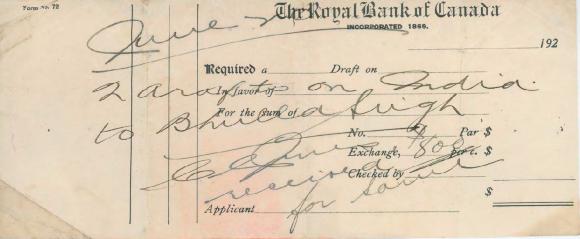 Form No. 72
The Royal Bank of Canada
INCORPORATED 1866.
June 192
Required a Draft on
2 drafts on India
In favor of
to Singh
For the sum of
No. Par $
Exchange, per c. $
800
received Checked by
for same $
Applicant